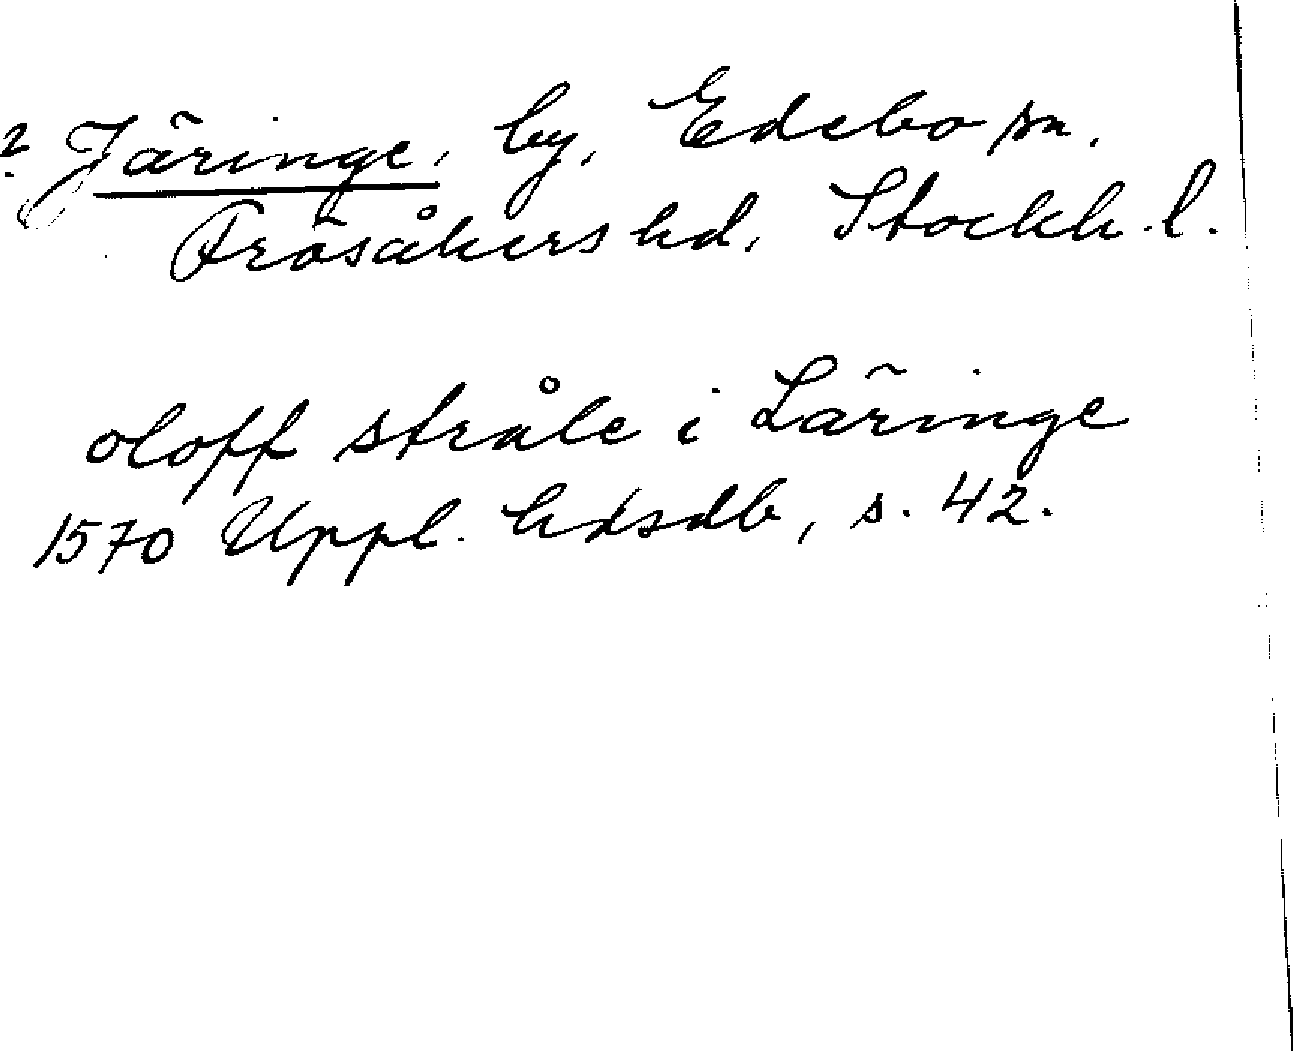 ? Järinge, by, Edebo sn.
Frösåkers hd, Stockh. l.
oloff stråle i Läringe
1570 Uppl. hdsdb, s. 42.